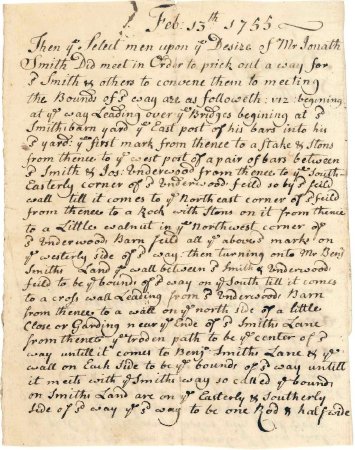 Feb: 13th 1755
Then ye Select men upon ye Desire of Mr Jonath
Smith Did meet in Order to prick out a way for
sd Smith & others to convene them to meeting
the Bounds of sd way are as followeth: viz begining
at ye way Leading over ye Bridges begining at sd
Smiths barn yard ye East post of his bars into his
sd yard: ye first mark from thence to a stake & stons
from thence to ye west post of a pair of bars between
sd Smith & Jos: Underwood from thence to ye South
Easterly corner of sd Underwood feild so by sd feild
wall till it comes to ye Northeast corner of sd feild
from thence to a Rock with Stons on it from thence
to a Little walnut in ye Northwest corner of
sd Underwood Barn feild all ye above marks on
ye westerly side of sd way then turning onto Mr Benj
Smiths Land ye wall between sd Smith & Underwood
feild to be ye bounds of sd way on ye South till it comes
to a cross wall Leading from sd Underwood Barn
from thence to a wall on ye north side of a little
Close or Garding near ye Ende of sd Smiths Lane
from thence ye troden path to be ye center of sd
way untill it comes to Benj Smiths Lane & ye
wall on Each Side to be ye bounds of sd way untill
it meets with ye Smiths way so called ye bounds
on Smiths Land are on ye Easterly & Southerly
side of sd way ye sd way to be one Rod & half wide